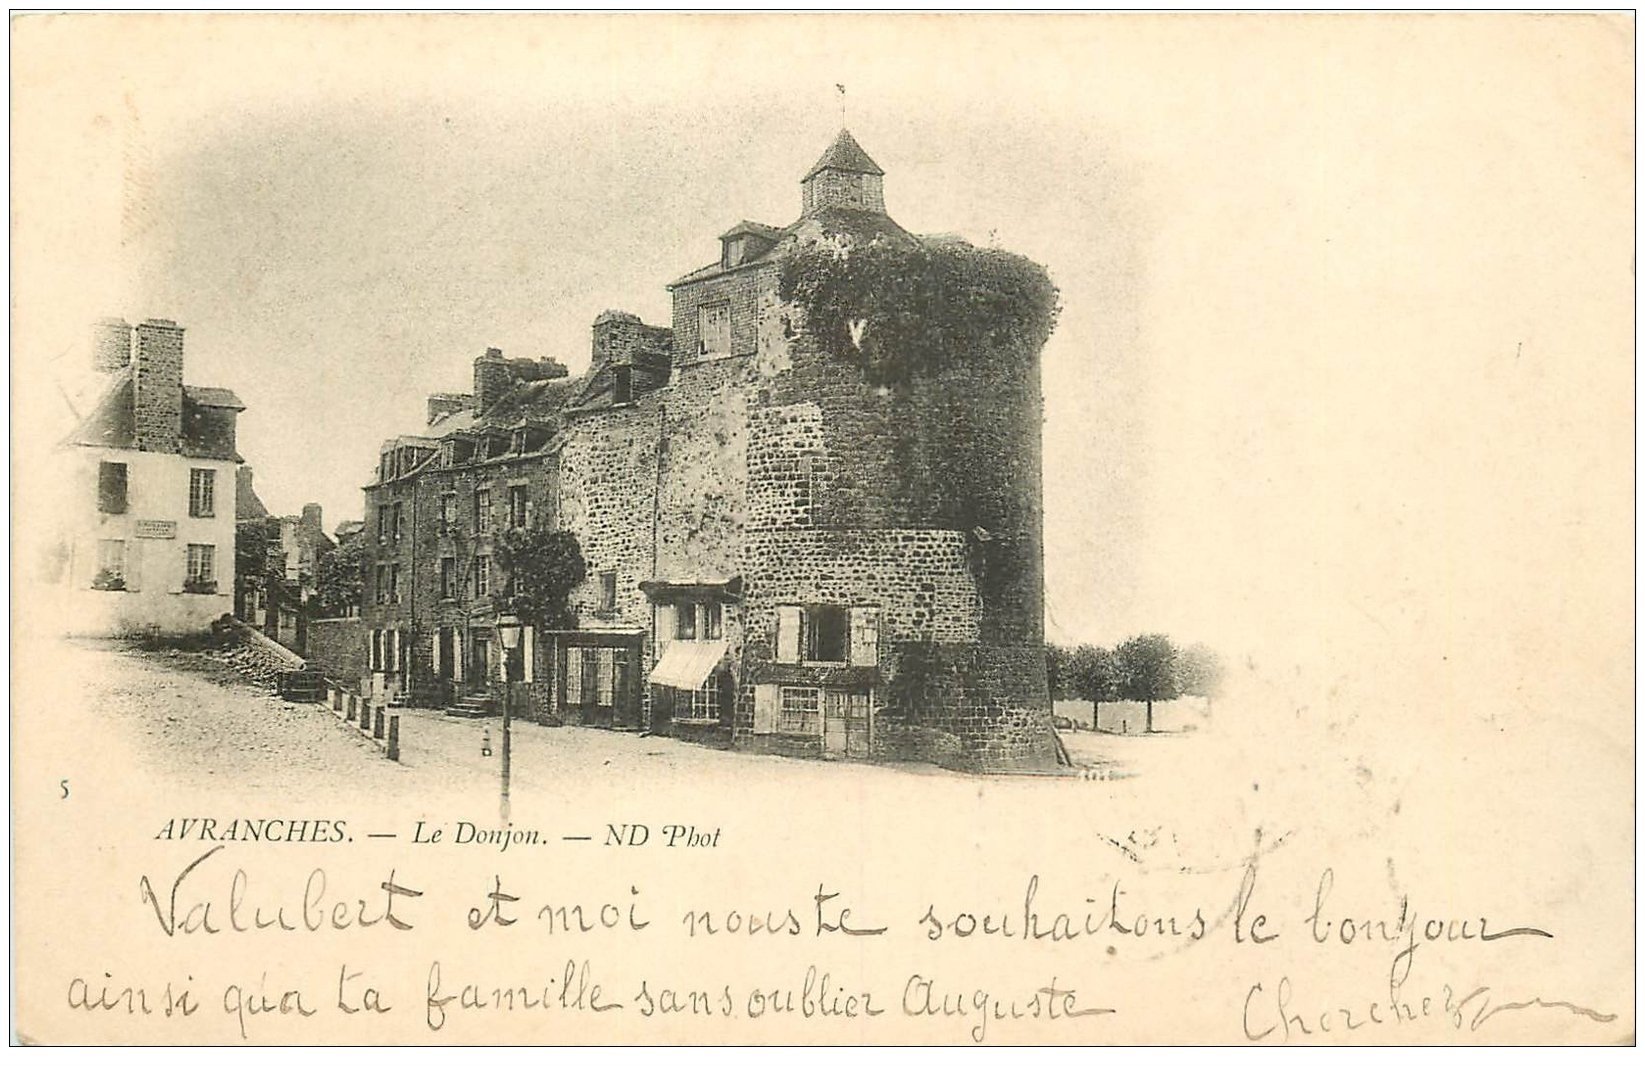 5
AVRANCHES. — Le Donjon. — ND Phot
Valubert et moi nous te souhaitons le bonjour
ainsi qu'a ta famille sans oublier Auguste